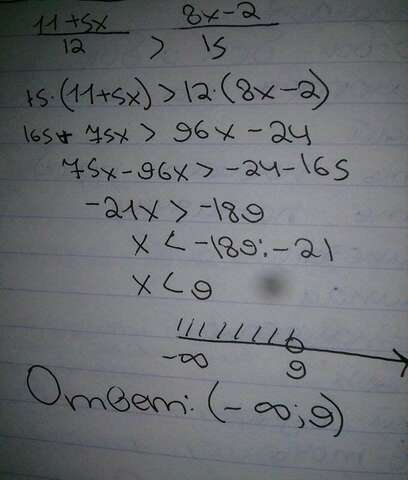 11+5x / 12 > 8x-2 / 15
15·(11+5x)>12·(8x-2)
165+75x > 96x-24
75x-96x > -24-165
-21x > -189
x < -189:-21
x < 9
-∞ 9
Ответ: (-∞;9)